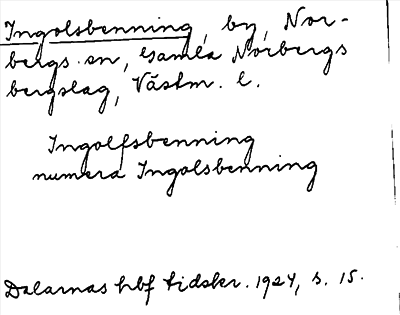 Ingolsbenning, by, Nor-
bergs sn, Gamla Norbergs
bergslag, Västm. l.
Ingolfsbenning
numera Ingolsbenning
Dalarnas hbf tidskr. 1924, s. 15.